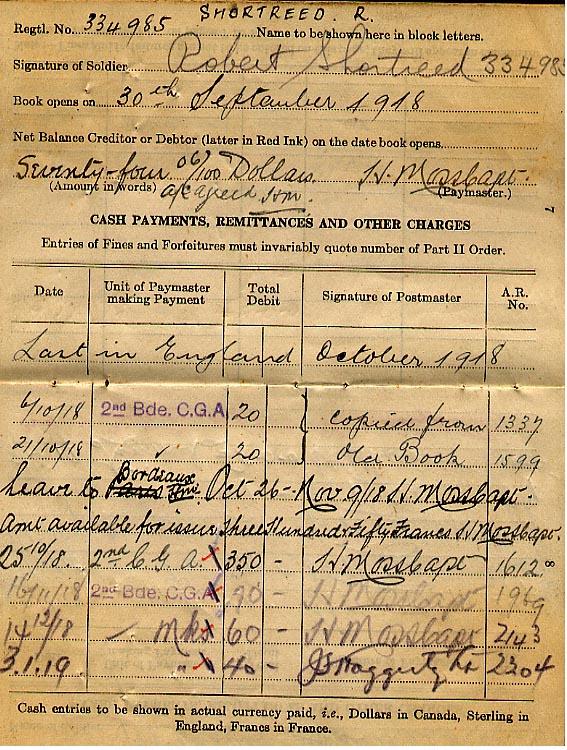 SHORTREED. R.
Regtl. No. 334985 Name to be shown here in block letters.
Signature of Soldier Robert Shortreed 334985
Book opens on 30th September 1918
Net Balance Creditor or Debtor (latter in Red Ink) on the date book opens
Seventy-four 06/100 Dollars. H. Moss Capt.
(Amount in words) a/c agreed HM. (Paymaster.)
7
CASH PAYMENTS, REMITTANCES AND OTHER CHARGES
Entries of Fines and Forfeitures must invariably quote number of Part II Order.
Date Unit of Paymaster making Payment Total Debit Signature of Postmaster A.R. No.
Last in England October 1918
6/10/18 2nd Bde. C.G.A 20 copied from 1337
21/10/18 20 Old Book 1599
Leave to Bordeaux Oct 26- Nov 9/18 H. Moss Capt.
Amt available for issue Three Hundred & Fifty Francs H Moss Capt.
25/10/18. 2nd C G A X 350 - H Moss Capt 1612
16/11/18 2nd Bde. C.G.A 90 - H Moss Capt 1969
14/12/18 X 60 - H Moss Capt 2143
3.1.19 " X 40 - Lt 2204
Cash entries to be shown in actual currency paid, i.e., Dollars in Canada, Sterling in
England, Francs in France.